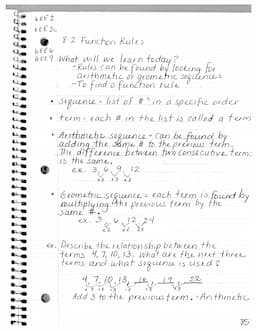 6EE2
6EE2c
8-2 Function Rules
6EE6
6EE9 What will we learn today?
-Rules can be found by looking for
arithmetic or geometric sequences
-To find a function rule
• sequence - list of #s in a specific order
• term - each # in the list is called a term
• Arithmetic sequence - can be found by
adding the same # to the previous term.
The difference between two consecutive terms
is the same.
ex. 3, 6, 9, 12
+3 +3 +3
• Geometric sequence = each term is found by
multiplying the previous term by the
same #.
ex. 3, 6, 12, 24
x2 x2 x2
ex. Describe the relationship between the
terms 4, 7, 10, 13. What are the next three
terms and what sequence is used?
4, 7, 10, 13, 16, 19, 22
+3 +3 +3 +3 +3 +3
Add 3 to the previous term. - Arithmetic
75